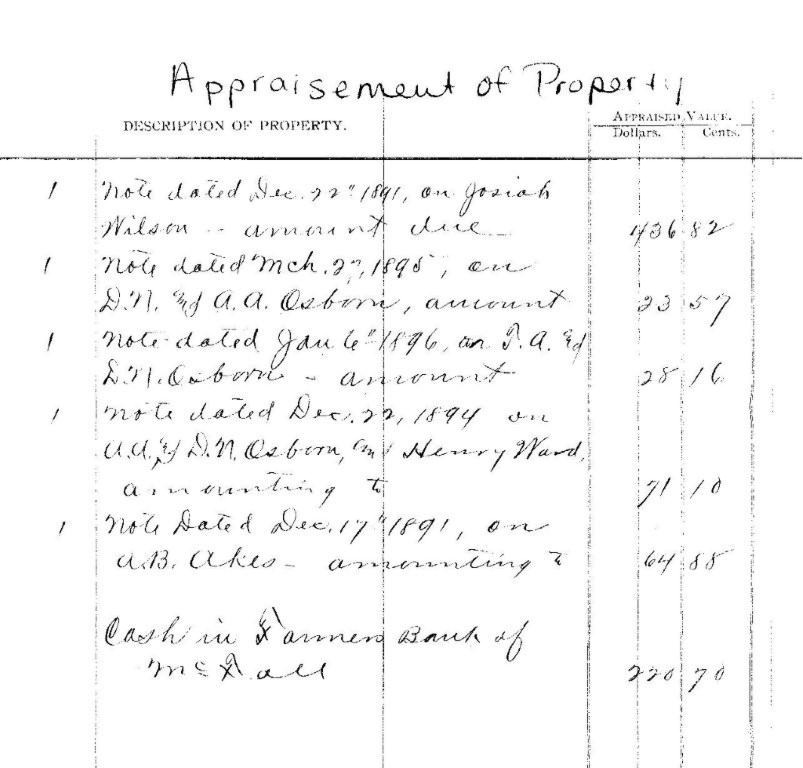 Appraisement of Property
DESCRIPTION OF PROPERTY. APPRAISED VALUE.
Dollars. Cents.
1 Note dated Dec. 22" 1891, on Josiah
Wilson - amount due 436 82
1 Note dated Mch. 27, 1895, on
D.N. & A.A. Osborn, amount 23 57
1 Note dated Jan 6" 1896, on T.A. &
D.N. Osborn - amount 28 16
1 Note dated Dec. 22, 1894 on
A.A. & D.N. Osborn, and Henry Ward,
amounting to 71 10
1 Note Dated Dec. 17" 1891, on
A.B. Akes - amounting to 64 88
Cash in Farmers Bank of
McFall 220 70